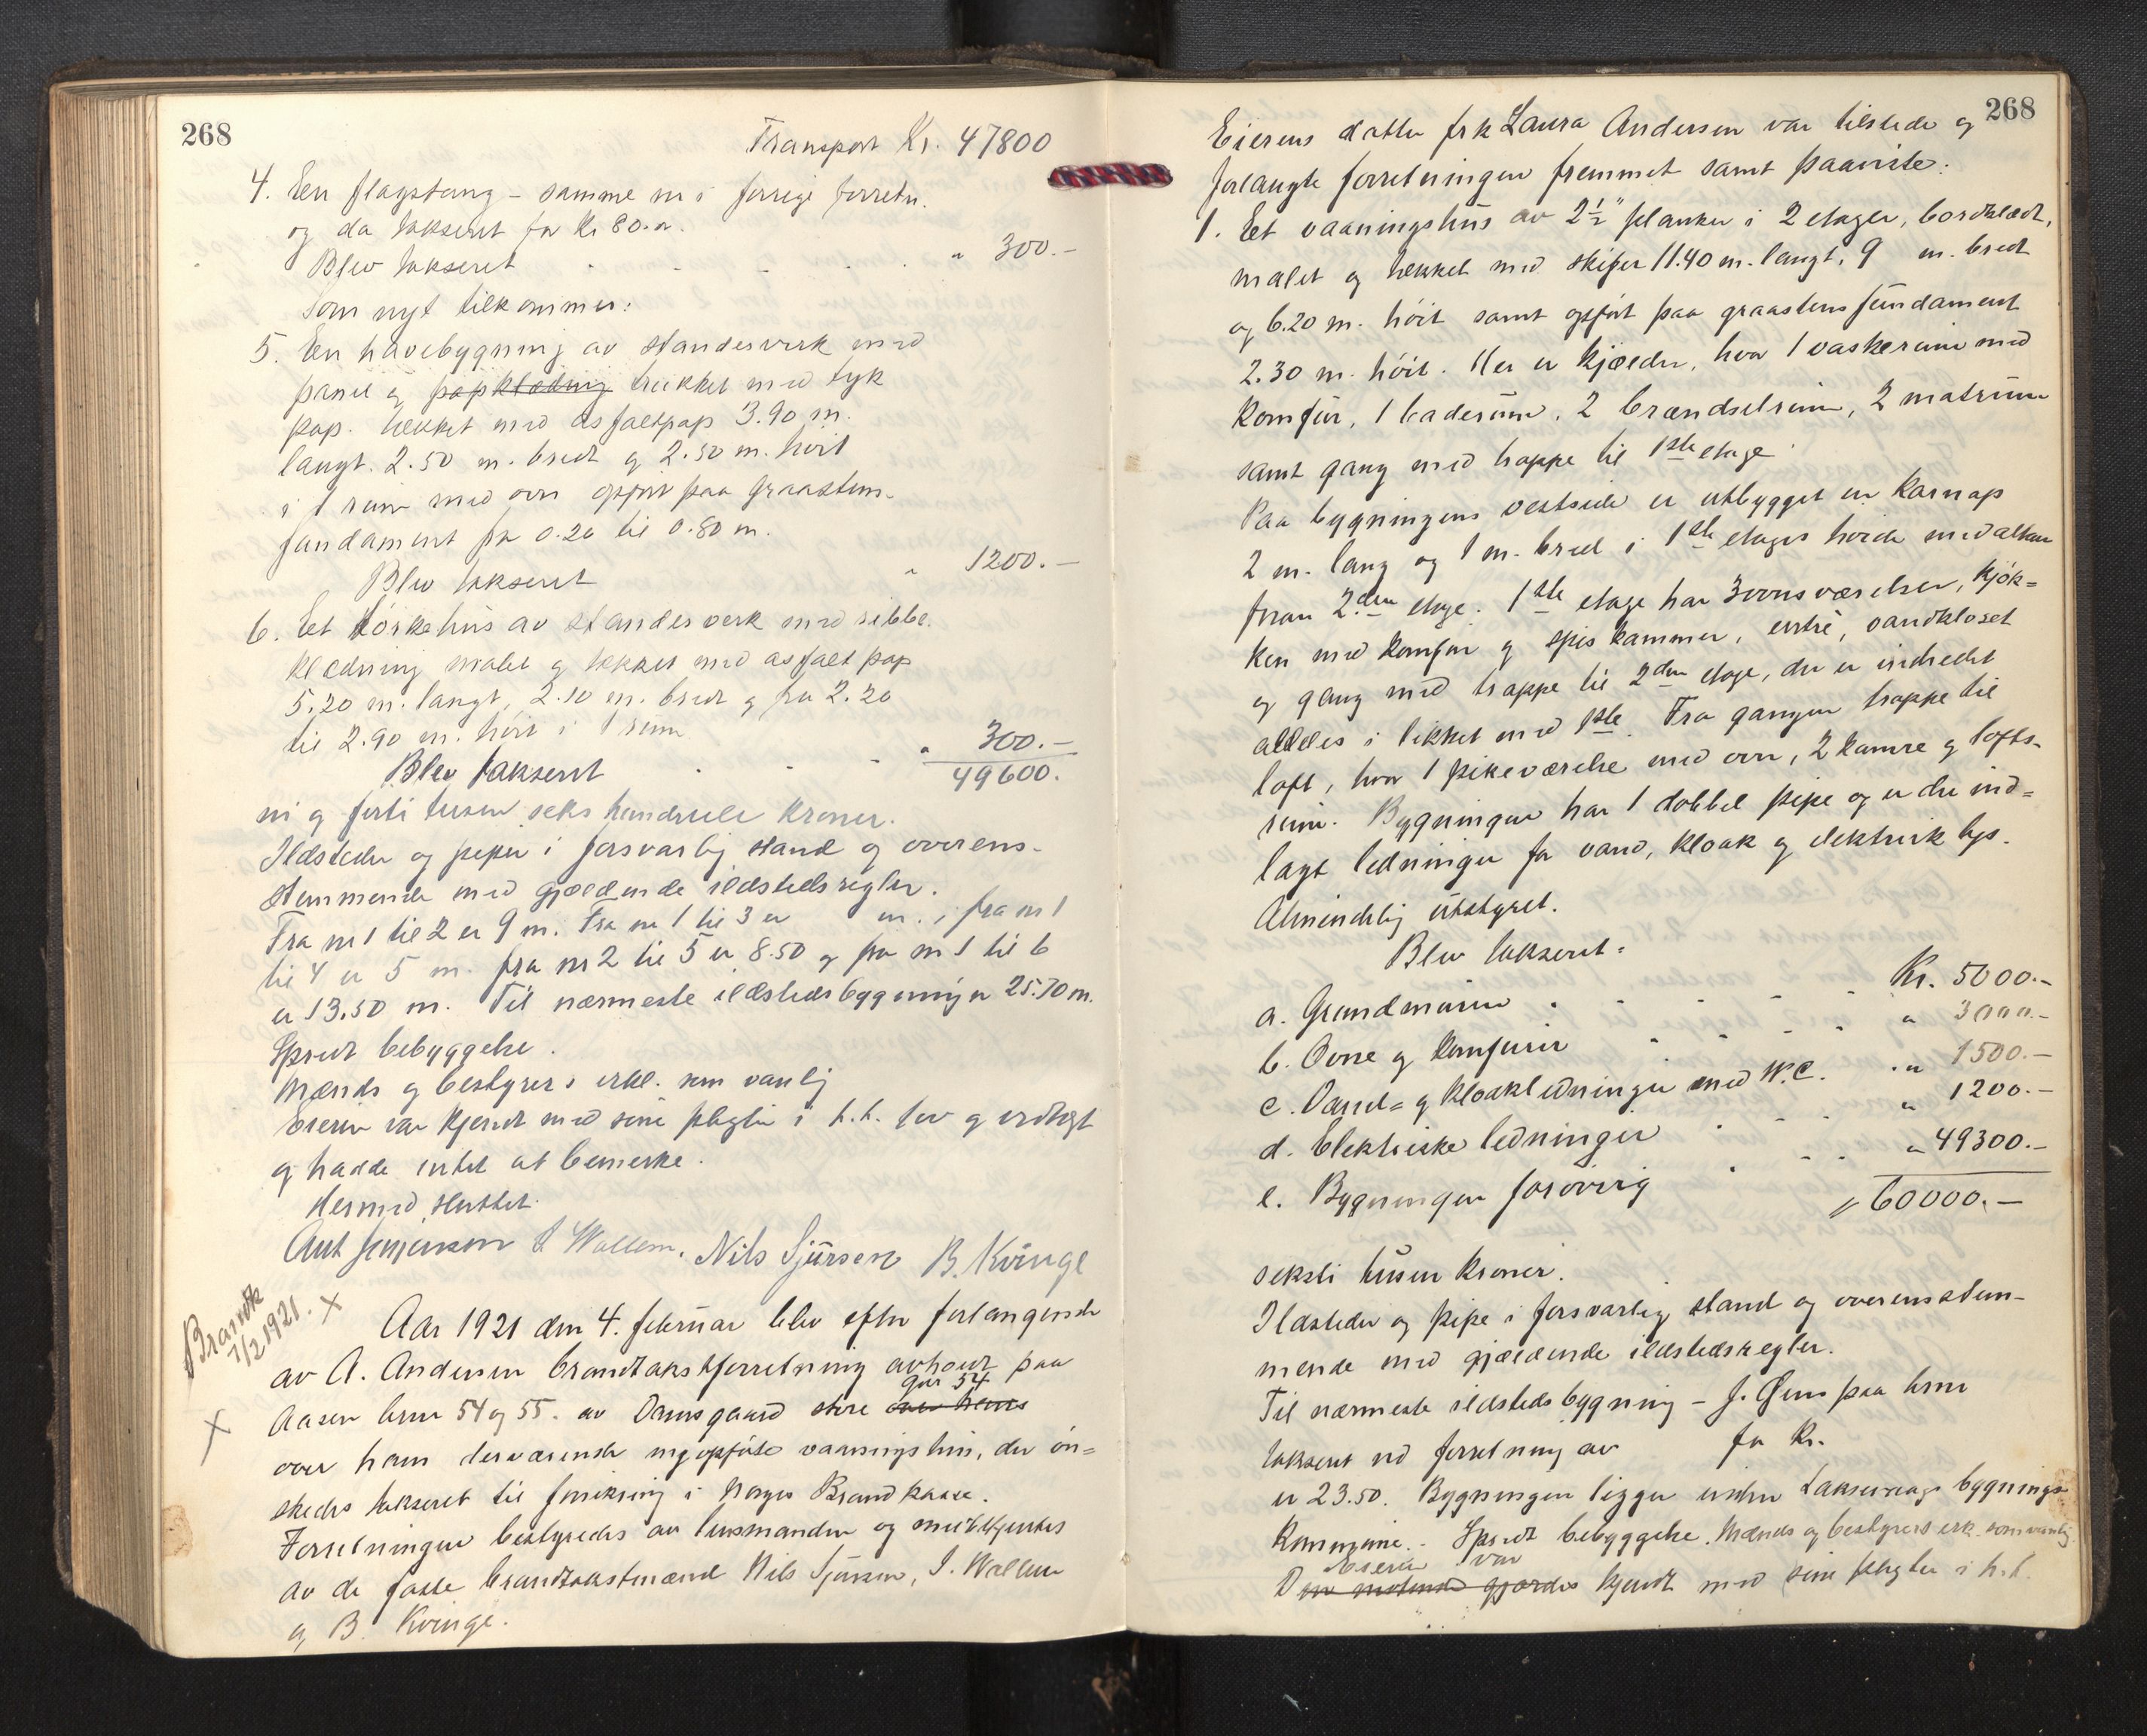 268
Transport Kr. 47800
4. Een flagstang - samme nr i forrige forretn.
og da takseret for Kr 80.00.
Blev takseret " 300.-
Som nyt tilkommer:
5. En havebygning av standerverk med
panel og papklædning trukket med tyk
pap. tækket med asfaltpap 3.90 m.
langt. 2.50 m. bredt og 2.50 m. høit
i 1 rum med ovn opført paa graastens-
fundament fra 0.20 til 0.80 m.
Blev takseret " 1200.-
6. Et tørkehus av standerverk med ribbe-
klædning malet og tækket med asfalt pap
5.20 m. langt, 2.10 m. bredt og fra 2.20
til 2.90 m. høit i 1 rum
Blev takseret " 300.-
49600.
ni og forti tusen seks hundrede kroner.
Ildsteder og piper i forsvarlig stand og overens-
stemmende med gjældende ildstedsregler.
Fra nr 1 til 2 er 9 m. Fra nr 1 til 3 er m. i fra nr 1
til 4 er 5 m. fra nr 2 til 5 er 8.50 og fra nr 1 til 6
er 13.50 m. Til nærmeste ildstedsbygning er 25.70 m.
Spredt bebyggelse.
Mænds og bestyrers erkl. som vanlig
Eieren var kjendt med sine pligter i h.t. lov og vedtægt
og hadde intet at bemerke.
Hermed sluttet.
I Wallem. Nils Sjursen B. Kvinge
Brandtk
7/2 1921. X
Aar 1921 den 4. februar blev efter forlangende
av A. Andersen brandtakstforretning avholdt paa
gnr 54
X
Aasen brnr 54 og 55. av Damsgaard store over hans
over hans derværende nyopførte vaaningshus, der øn=
skedes takseret til forsikring i Norges Brandkasse.
Forretningen bestyredes av lensmanden og
av de faste brandtakstmænd Nils Sjursen, I. Wallem
og B. Kvinge.
268
Eierens datter frk Laura Andersen var tilstede og
forlangte forretningen fremmet samt paaviste:
1. Et vaaningshus av 2½" planker i 2 etager, bordklædt,
malet og tækket med skifer 11.40 m. langt, 9 m. bredt
og 6.20 m. høit samt opført paa graastensfundament
2.30 m. høit. Her er kjælder, hvor 1 vaskerum med
komfur, 1 baderum, 2 brændselrum, 2 matrum
samt gang med trappe til 1ste etage.
Paa bygningens vestside er utbygget en karnap
2 m. lang og 1 m. bred i 1ste etages høide med altan
foran 2den etage. 1ste etage har 3 ovnsværelser, kjøk=
ken med komfur og spiskammer, entré, vandkloset
og gang med trappe til 2den etage, der er indredet
aldeles i likhet med 1ste. Fra gangen trappe til
loft, hvor 1 pikeværelse med ovn, 2 kamre og lofts-
rum. Bygningen har 1 dobbel pipe og er der ind=
lagt ledninger for vand, kloak og elektrisk lys.
Almindelig utstyret.
Blev takseret:
a. Grundmuren Kr. 5000.-
b. Ovne og komfurer " 3000.-
c. Vand= og kloakledninger med W.C. " 1500.-
d. Elektriske ledninger " 1200.-
e. Bygningen forøvrig " 49300.-
" 60000.-
seksti tusen kroner.
Ildsteder og pipe i forsvarlig stand og overensstem-
mende med gjældende ildstedsregler.
Til nærmeste ildstedsbygning - paa brnr
takseret ved forretning av for Kr.
er 23.50. Bygningen ligger under Laksevaags bygnings-
kommune. - Spredt bebyggelse. Mænds og bestyrers erk. som vanlig
Eieren var
Den gjordes kjendt med sine pligter i h.t.